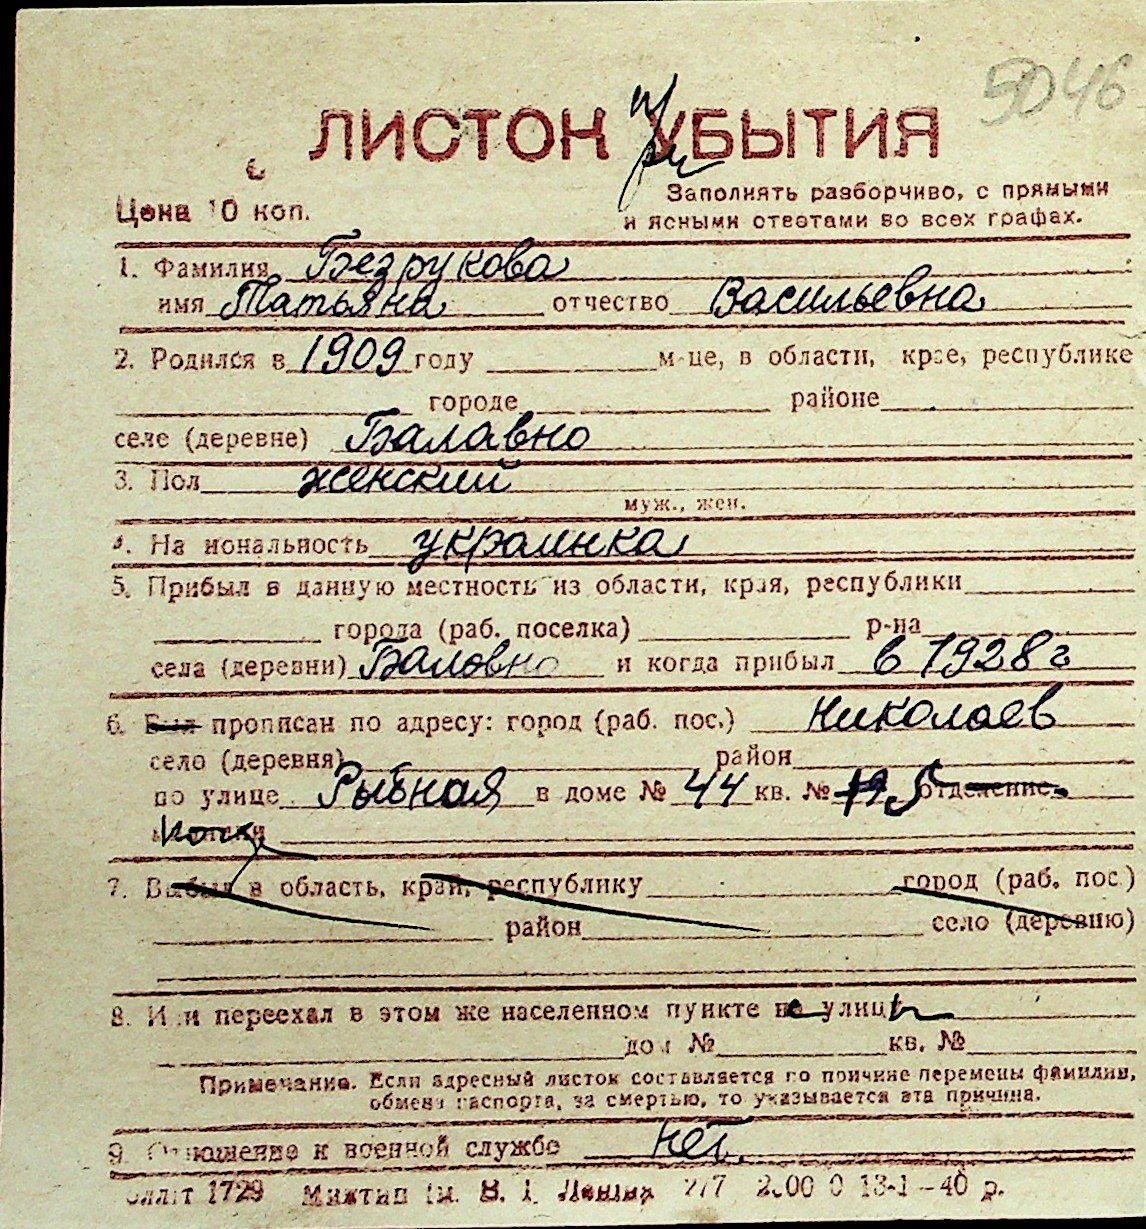 5046
ЛИСТОК при УБЫТИЯ
Цена 10 коп.
Заполнять разборчиво, с прямыми
и ясными ответами во всех графах.
1. Фамилия Безрукова
имя Татьяна отчество Васильевна
2. Родился в 1909 году м-це, в области, крае, республике
городе районе
селе (деревне) Балавно
3. Пол женский
муж., жен.
4. Национальность украинка
5. Прибыл в данную местность из области, края, республики
города (раб. поселка) р-на
села (деревни) Баловно и когда прибыл в 1928 г
6. Был прописан по адресу: город (раб. пос.) Николаев
село (деревня) район
по улице Рыбная в доме № 44 кв. № 19 5 отделение
7. Выбыл в область, край, республику город (раб. пос.)
район село (деревню)
8. Или переехал в этом же населенном пункте на улицу
дом № кв. №
Примечание. Если адресный листок составляется по причине перемены фамилии,
обмена паспорта, за смертью, то указывается эта причина.
9. Отношение к военной службе нет.
1729 Миктип им. В. І. Леніна 277 13-1-40 р.